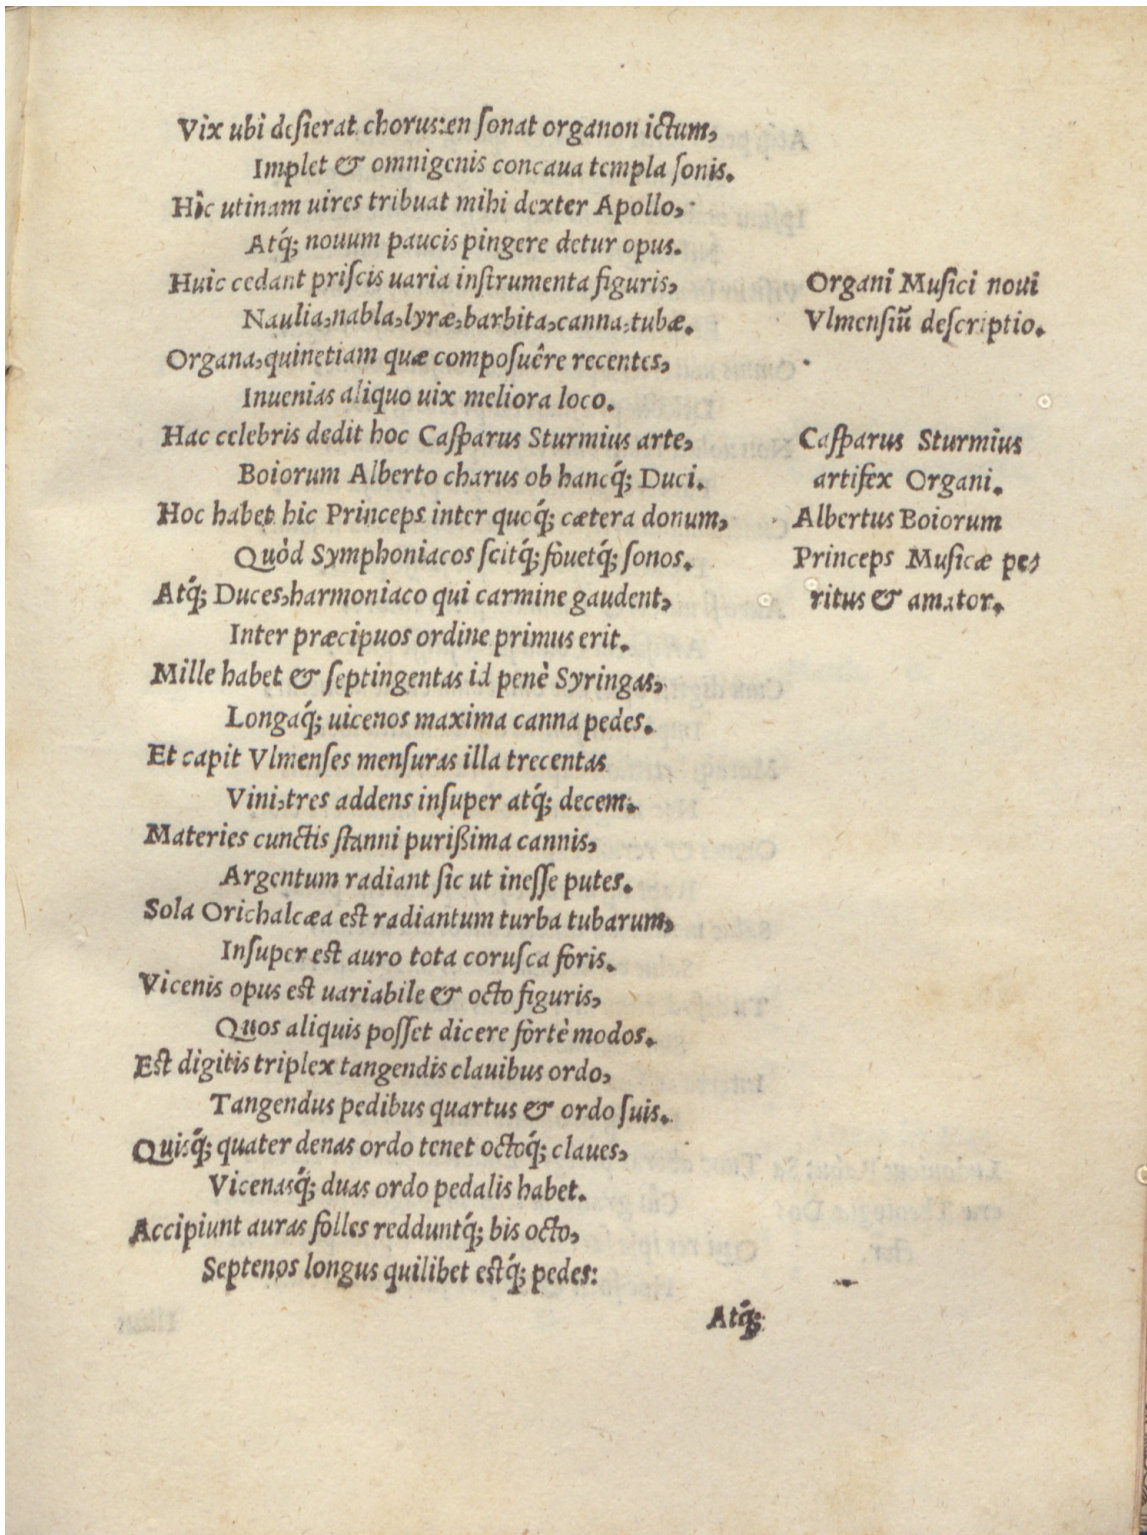 Vix ubi desierat chorus:en sonat organon ictum,
Implet & omnigenis concaua templa sonis.
Hìc utinam uires tribuat mihi dexter Apollo,
Atq́; nouum paucis pingere detur opus.
Huic cedant priscis uaria instrumenta figuris,
Naulia,nabla,lyræ,barbita,canna,tubæ.
Organa,quinetiam quæ composuêre recentes,
Inuenias aliquo uix meliora loco.
Hac celebris dedit hoc Casparus Sturmius arte,
Boiorum Alberto charus ob hancq́; Duci.
Hoc habet hic Princeps inter queq́; cætera donum,
Quòd Symphoniacos scitq́; fouetq́; sonos.
Atq́; Duces,harmoniaco qui carmine gaudent,
Inter præcipuos ordine primus erit.
Mille habet & septingentas id penè Syringas,
Longaq́; uicenos maxima canna pedes.
Et capit Vlmenses mensuras illa trecentas
Vini,tres addens insuper atq́; decem.
Materies cunctis stanni purißima cannis,
Argentum radiant sic ut inesse putes.
Sola Orichalcæa est radiantum turba tubarum,
Insuper est auro tota corusca foris.
Vicenis opus est uariabile & octo figuris,
Quos aliquis posset dicere fortè modos.
Est digitis triplex tangendis clauibus ordo,
Tangendus pedibus quartus & ordo suis.
Quisq́; quater denas ordo tenet octoq́; claues,
Vicenasq́; duas ordo pedalis habet.
Accipiunt auras folles redduntq́; bis octo,
Septenos longus quilibet estq́; pedes:
Atq́;
Organi Musici noui
Vlmensiũ descriptio.
Casparus Sturmius
artifex Organi.
Albertus Boiorum
Princeps Musicæ pe-
ritus & amator.